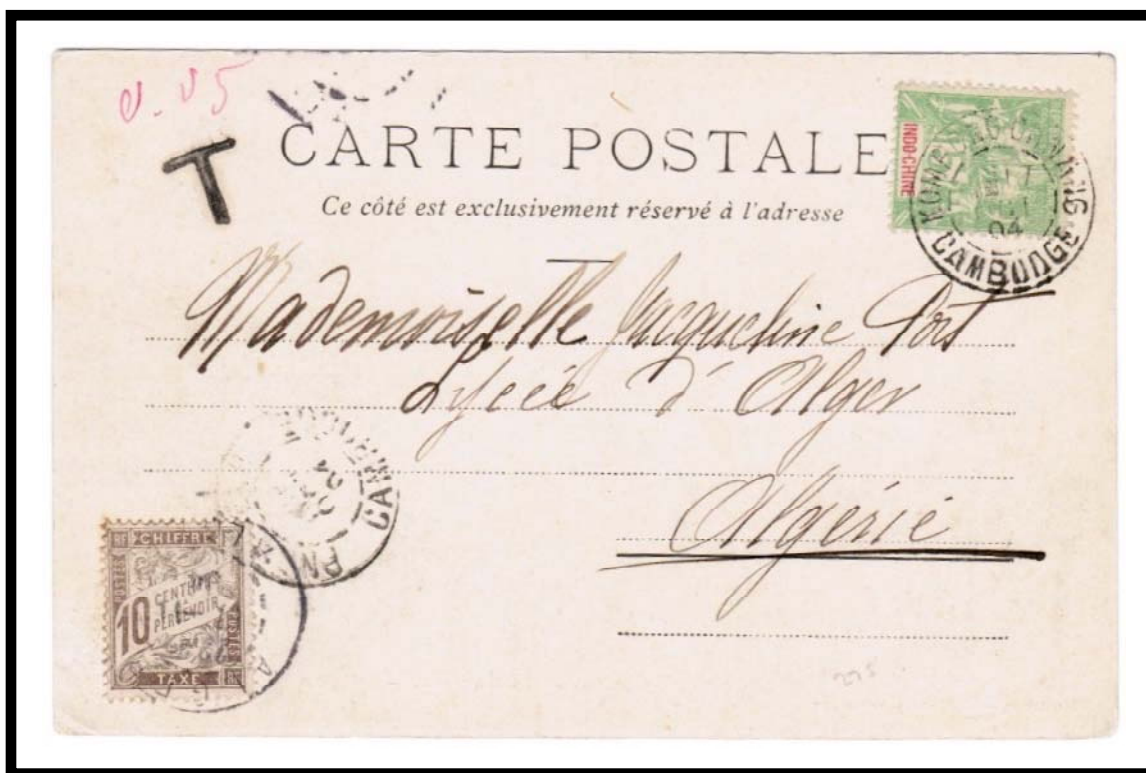 0.05
T
CARTE POSTALE
Ce côté est exclusivement réservé à l'adresse
INDO-CHINE
04
CAMBODGE
Mademoiselle Jacqueline Port
Lycée d'Alger
Algérie
CAMBODGE
PN
RF CHIFFRE
POSTES
10
CENTIMES
A
PERCEVOIR
POSTES
TAXE
275